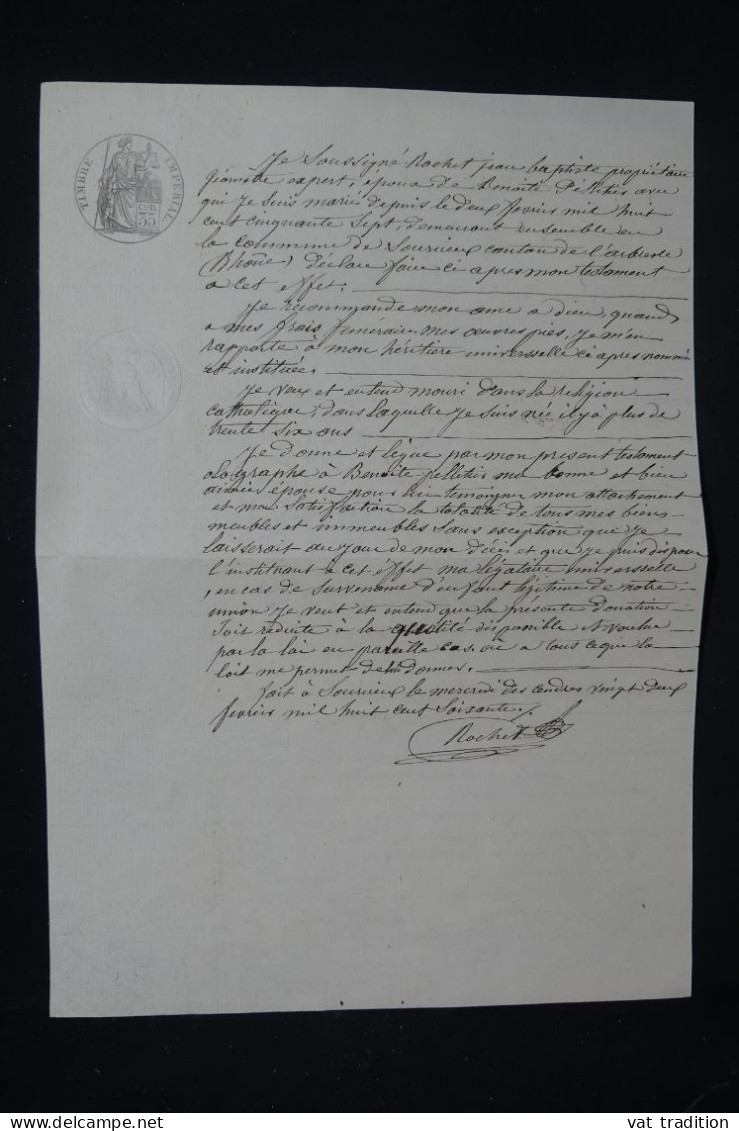 TIMBRE IMPERIAL
35
Je Soussigné Rochet jean baptiste propriétaire
Géomètre expert, époux de Benoite Pelletier avec
qui Je Suis marié depuis le deux fevrier mil huit
cent cinquante Sept, demeurant ensemble en
la Commune de Sourcieux canton de l'arbresle
(Rhône) déclare faire ci apres mon testament
a cet effet.
Je recommande mon ame a dieu, quand
a mes frais funéraires mes œuvres pies, Je m'en
rapporte à mon héritière universselle ci apres nommée
et instituée.
Je veux et entend mourir dans la religion
catholique, dans laquelle Je suis née il y a plus de
trente six ans
Je donne et lègue par mon present testament
olographe à Benoite pelletier ma bonne et bien
aimée épouse pour lui temoigner mon attachement
et ma Satisfaction la totalité de tous mes biens
meubles et immeubles Sans exception que Je
laisserait au Jour de mon décès et que Je puis disposer
l'instituant a cet éffet ma légataire universselle
en cas de Survenance d'enfant légitime de notre
union Je veut et entend que la présente donation
Soit reduite à la quotité disponible et voulue
par la loi en pareille cas, ou a tous ce que la
loit me permet de donner.
fait à Sourcieux le mercredi des cendres vingt deux
fevrier mil huit cent Soixante.
Rochet
vat tradition